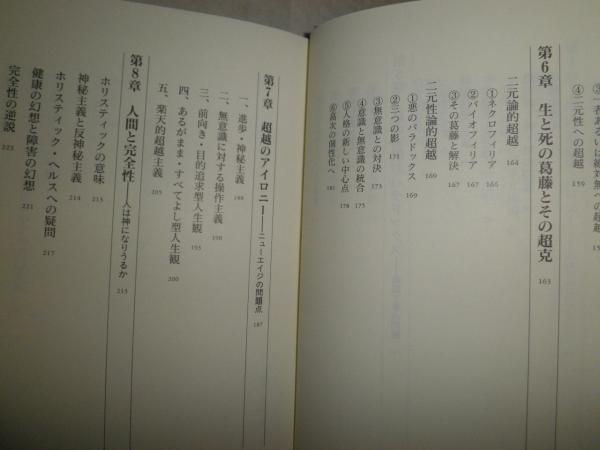 ④二元性への超越 159
第6章 生と死の葛藤とその超克 163
二元論的超越 164
①ネクロフィリア 166
②バイオフィリア 167
③その葛藤と解決 167
二元性論的超越 169
①悪のパラドックス 169
②三つの影 171
③無意識との対決 173
④意識と無意識の統合 175
⑤人格の新しい中心点 178
⑥高次の個性化へ 181
第7章 超越のアイロニー――ニューエイジの問題点 187
一、進歩・神秘主義 188
二、無意識に対する操作主義 190
三、前向き・目的追求型人生観 195
四、あるがまま・すべてよし型人生観 200
五、楽天的超越主義 205
第8章 人間と完全性――人は神になりうるか 213
ホリスティックの意味 213
神秘主義と反神秘主義 214
ホリスティック・ヘルスへの疑問 217
健康の幻想と障害の幻想 221
完全性の逆説 223